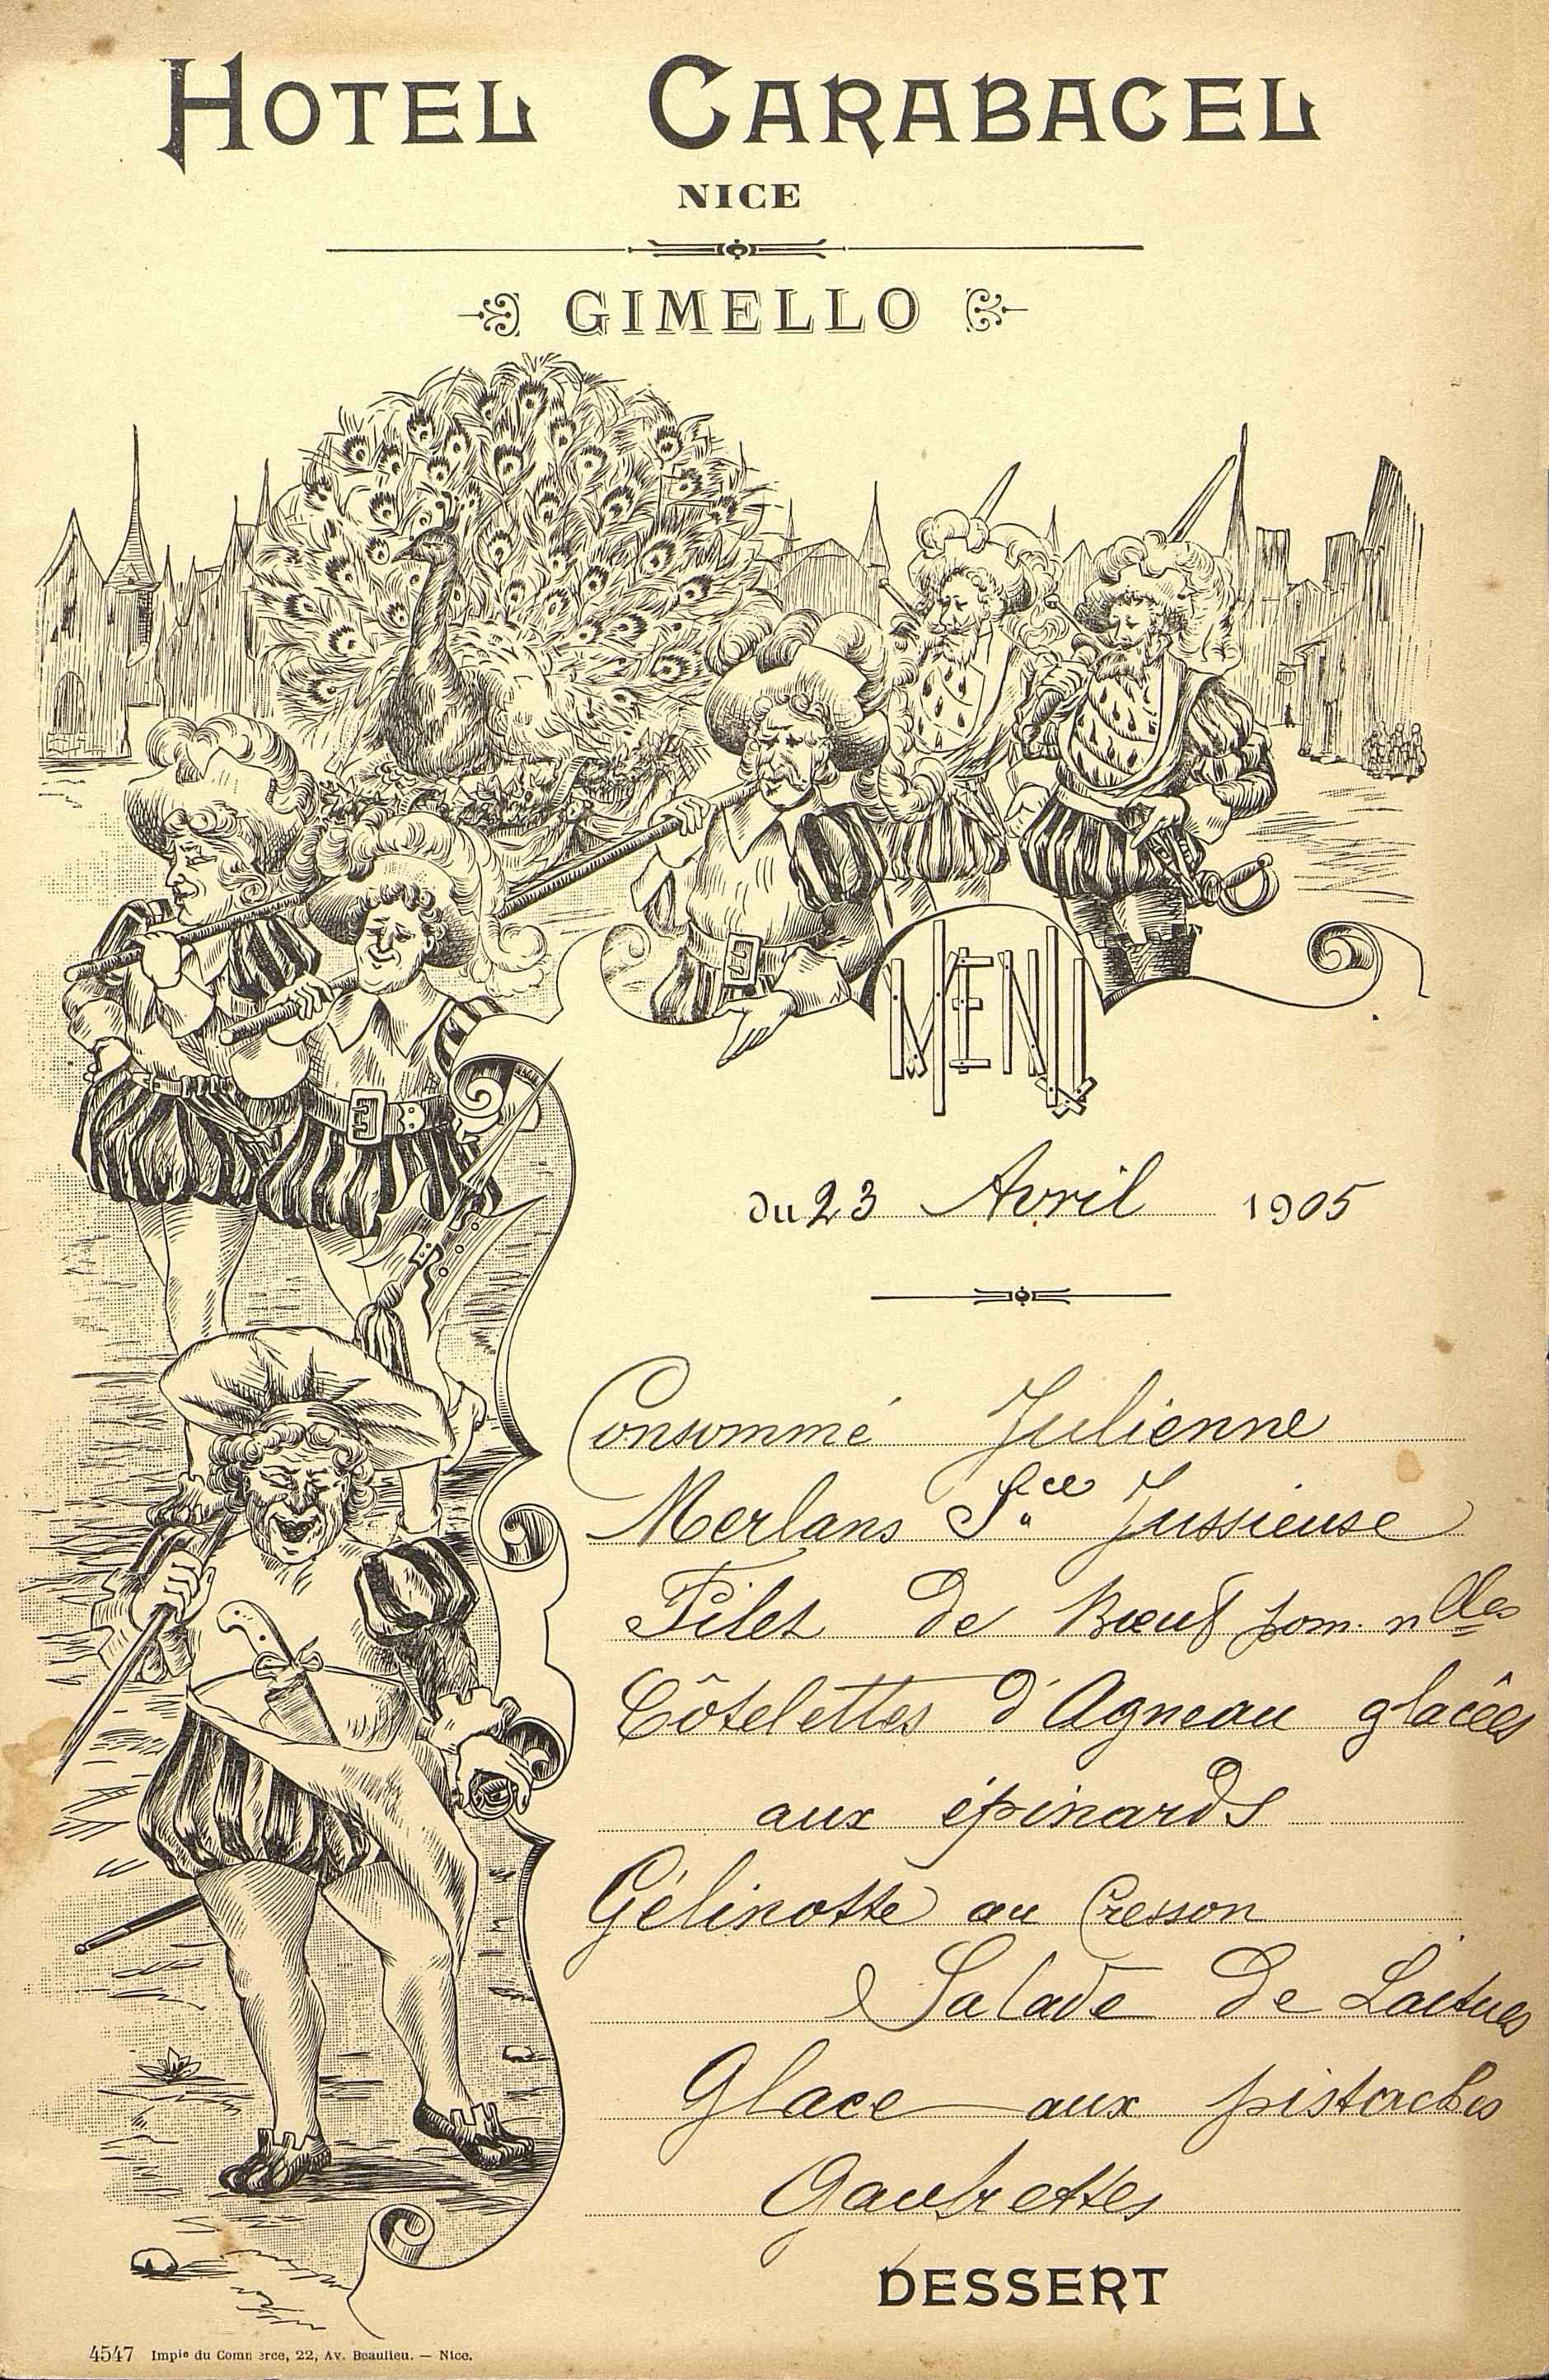 HOTEL CARABACEL
NICE
GIMELLO
MENU
du 23 Avril 1905
Consommé Julienne
Merlans Sce Jussieuse
Filet de Bœuf pom. nlles
Côtelettes d'Agneau glacées
aux épinards
Gélinotte au Cresson
Salade de Laitues
Glace aux pistaches
Gaufrettes
DESSERT
4547 Impie du Commerce, 22, Av. Beaulieu. — Nice.